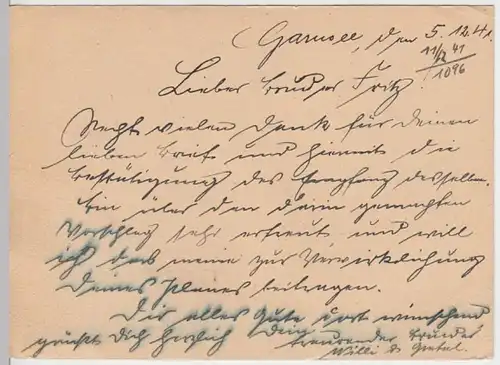 Garnsee, den 5.12.41.
11/12 41
1096
Lieber Bruder Fritz!
Recht vielen Dank für Deinen
lieben Brief und hiermit die
Bestätigung des Empfang desselben.
Bin über den darin gemachten
Vorschlag sehr erfreut und will
ich das meine zur Verwirklichung
Deines Planes beitragen.
Dir alles Gute dort wünschend
grüßt Dich herzlich Dein treuer Bruder
Willi & Gretel.